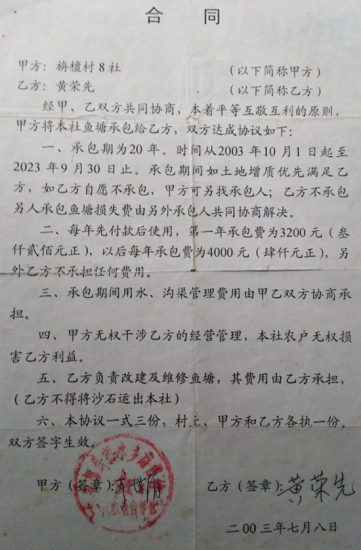 合 同
甲方：旃檀村8社 （以下简称甲方）
乙方：黄荣先 （以下简称乙方）
经甲、乙双方共同协商，本着平等互敬互利的原则，
甲方将本社鱼塘承包给乙方，双方达成协议如下：
一、承包期为20年。时间从2003年10月1日起至
2023年9月30日止。承包期间如土地增质优先满足乙
方，如乙方自愿不承包，甲方可另找承包人；乙方不承包
另人承包鱼塘损失费由另外承包人共同协商解决。
二、每年先付款后使用，第一年承包费为3200元（叁
仟贰佰元正），以后每年承包费为4000元（肆仟元正），另
外乙方不承担任何费用。
三、承包期间用水、沟渠管理费用由甲乙双方协商承
担。
四、甲方无权干涉乙方的经营管理，本社农户无权损
害乙方利益。
五、乙方负责改建及维修鱼塘，其费用由乙方承担，
（乙方不得将沙石运出本社）
六、本协议一式三份，村上，甲方和乙方各执一份，
双方签字生效。
甲方（签章） 乙方（签章）：黄荣先
二00三年七月八日